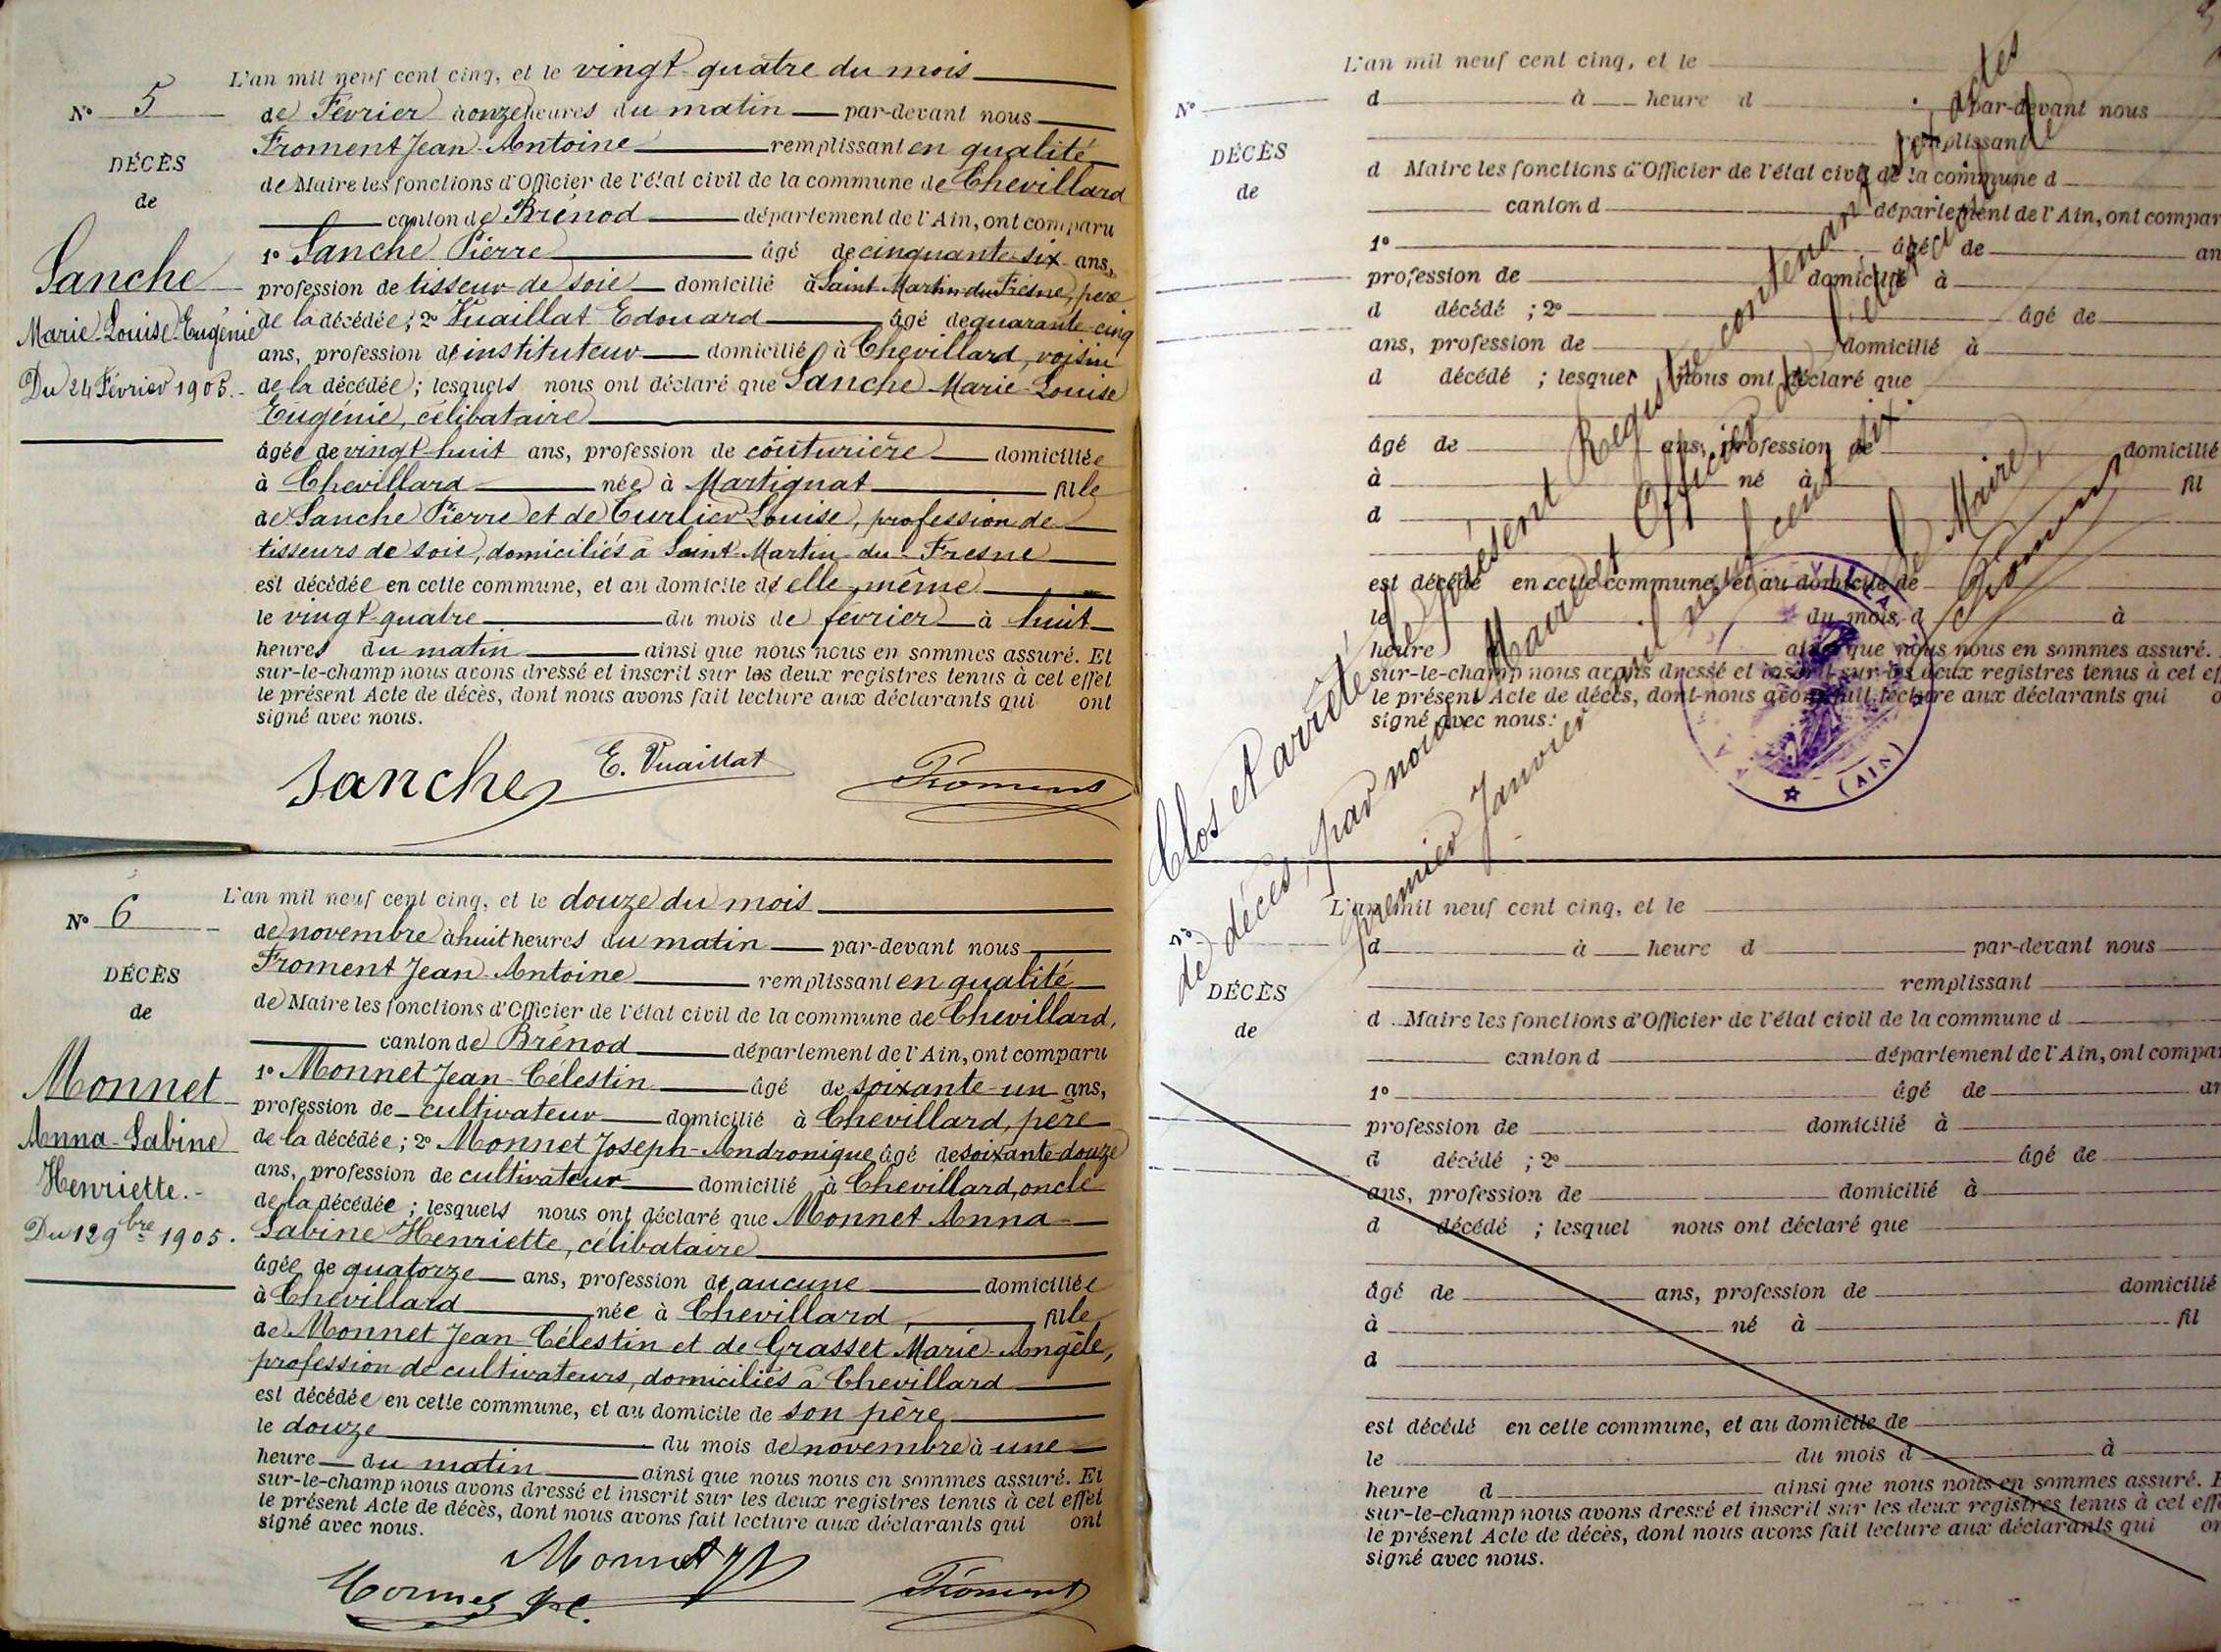 L'an mil neuf cent cinq, et le vingt-quatre du mois
N° 5
de Février à onze heures du matin par-devant nous
Froment Jean-Antoine remplissant en qualité
DÉCÈS
de
de Maire les fonctions d'Officier de l'état civil de la commune de Chevillard
canton de Brénod département de l'Ain, ont comparu
Sanche
Marie-Louise-Eugénie
Du 24 Février 1905.
1° Sanche Pierre âgé de cinquante-six ans,
profession de tisseur de soie domicilié à Saint-Martin-du-Fresne, père
de la décédée ; 2° Vuaillat Edouard âgé de quarante-cinq
ans, profession de instituteur domicilié à Chevillard, voisin
de la décédée ; lesquels nous ont déclaré que Sanche Marie-Louise
Eugénie, célibataire
âgée de vingt-huit ans, profession de couturière domiciliée
à Chevillard née à Martignat fille
de Sanche Pierre et de Curlier Louise, profession de
tisseurs de soie, domiciliés à Saint-Martin-du-Fresne
est décédée en cette commune, et au domicile de elle-même
le vingt-quatre du mois de février à huit
heures du matin ainsi que nous nous en sommes assuré. Et
sur-le-champ nous avons dressé et inscrit sur les deux registres tenus à cet effet
le présent Acte de décès, dont nous avons fait lecture aux déclarants qui ont
signé avec nous.
Sanche E. Vuaillat Froment
L'an mil neuf cent cinq, et le douze du mois
N° 6
de novembre à huit heures du matin par-devant nous
Froment Jean-Antoine remplissant en qualité
DÉCÈS
de
de Maire les fonctions d'Officier de l'état civil de la commune de Chevillard,
canton de Brénod département de l'Ain, ont comparu
Monnet
Anna-Sabine
Henriette.-
Du 12 9bre 1905.
1° Monnet Jean-Célestin âgé de soixante-un ans,
profession de cultivateur domicilié à Chevillard, père
de la décédée ; 2° Monnet Joseph-Andronique âgé de soixante-douze
ans, profession de cultivateur domicilié à Chevillard, oncle
de la décédée ; lesquels nous ont déclaré que Monnet Anna
Sabine Henriette, célibataire
âgée de quatorze ans, profession de aucune domiciliée
à Chevillard née à Chevillard, fille
de Monnet Jean-Célestin et de Grasset Marie-Angèle,
profession de cultivateurs, domiciliés à Chevillard
est décédée en cette commune, et au domicile de son père
le douze du mois de novembre à une
heure du matin ainsi que nous nous en sommes assuré. Et
sur-le-champ nous avons dressé et inscrit sur les deux registres tenus à cet effet
le présent Acte de décès, dont nous avons fait lecture aux déclarants qui ont
signé avec nous.
Monnet
Monnet J C. Froment
L'an mil neuf cent cinq, et le
N°
d à heure d par-devant nous
remplissant
DÉCÈS
de
d Maire les fonctions d'Officier de l'état civil de la commune d
canton d département de l'Ain, ont compar
1° âgé de an
profession de domicilié à
d décédé ; 2° âgé de
ans, profession de domicilié à
d décédé ; lesquel nous ont déclaré que
âgé de ans, profession de domicilié
à né à fil
d
est décédé en cette commune, et au domicile de
le du mois d à
heure ainsi que nous nous en sommes assuré.
sur-le-champ nous avons dressé et inscrit sur les deux registres tenus à cet eff
le présent Acte de décès, dont nous avons fait lecture aux déclarants qui o
signé avec nous.
Clos et arrêté le présent Registre contenant six actes
de décès, par nous Maire et Officier de l'état civil
premier Janvier mil neuf cent six.
Le Maire,
Froment
(AIN)
L'an mil neuf cent cinq, et le
N°
d à heure d par-devant nous
remplissant
DÉCÈS
de
d Maire les fonctions d'Officier de l'état civil de la commune d
canton d département de l'Ain, ont compar
1° âgé de an
profession de domicilié à
d décédé ; 2° âgé de
ans, profession de domicilié à
d décédé ; lesquel nous ont déclaré que
âgé de ans, profession de domicilié
à né à fil
d
est décédé en cette commune, et au domicile de
le du mois d à
heure d ainsi que nous nous en sommes assuré. E
sur-le-champ nous avons dressé et inscrit sur les deux registres tenus à cet eff
le présent Acte de décès, dont nous avons fait lecture aux déclarants qui on
signé avec nous.